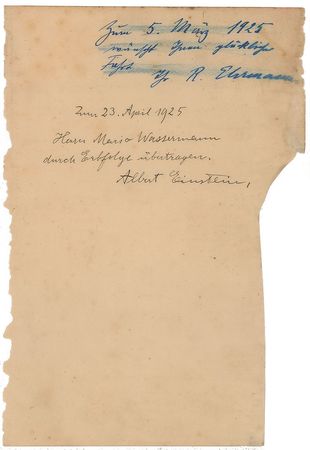 Zum 5. März 1925
wünscht Ihnen glückliche
Fahrt
Ihr R. Ehrmann
Zum 23. April 1925
Herrn Mario Wassermann
durch Erbfolge übertragen.
Albert Einstein,